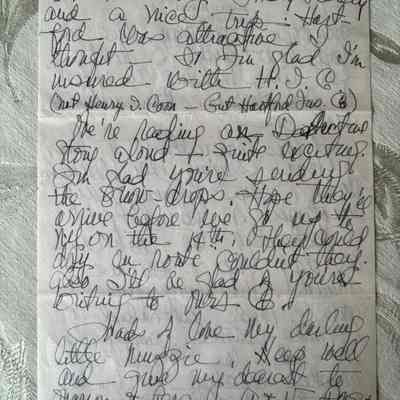 and a nice trip. Hart-
ford was attractive I
thought – So I'm glad I'm
insured with H. I. Co
(not Henry I. Coon – but Hartford Ins. Co)
We're reading a Detective
story aloud + quite exciting.
I'm glad you're sending
the snow-drops. Hope they'll
arrive before we go up to
N.Y. on the 14th. They could
dry en route couldn't they.
I'll be glad if you're
writing to
Loads of love my darling
little muggie. Keep well
and give my dearest to